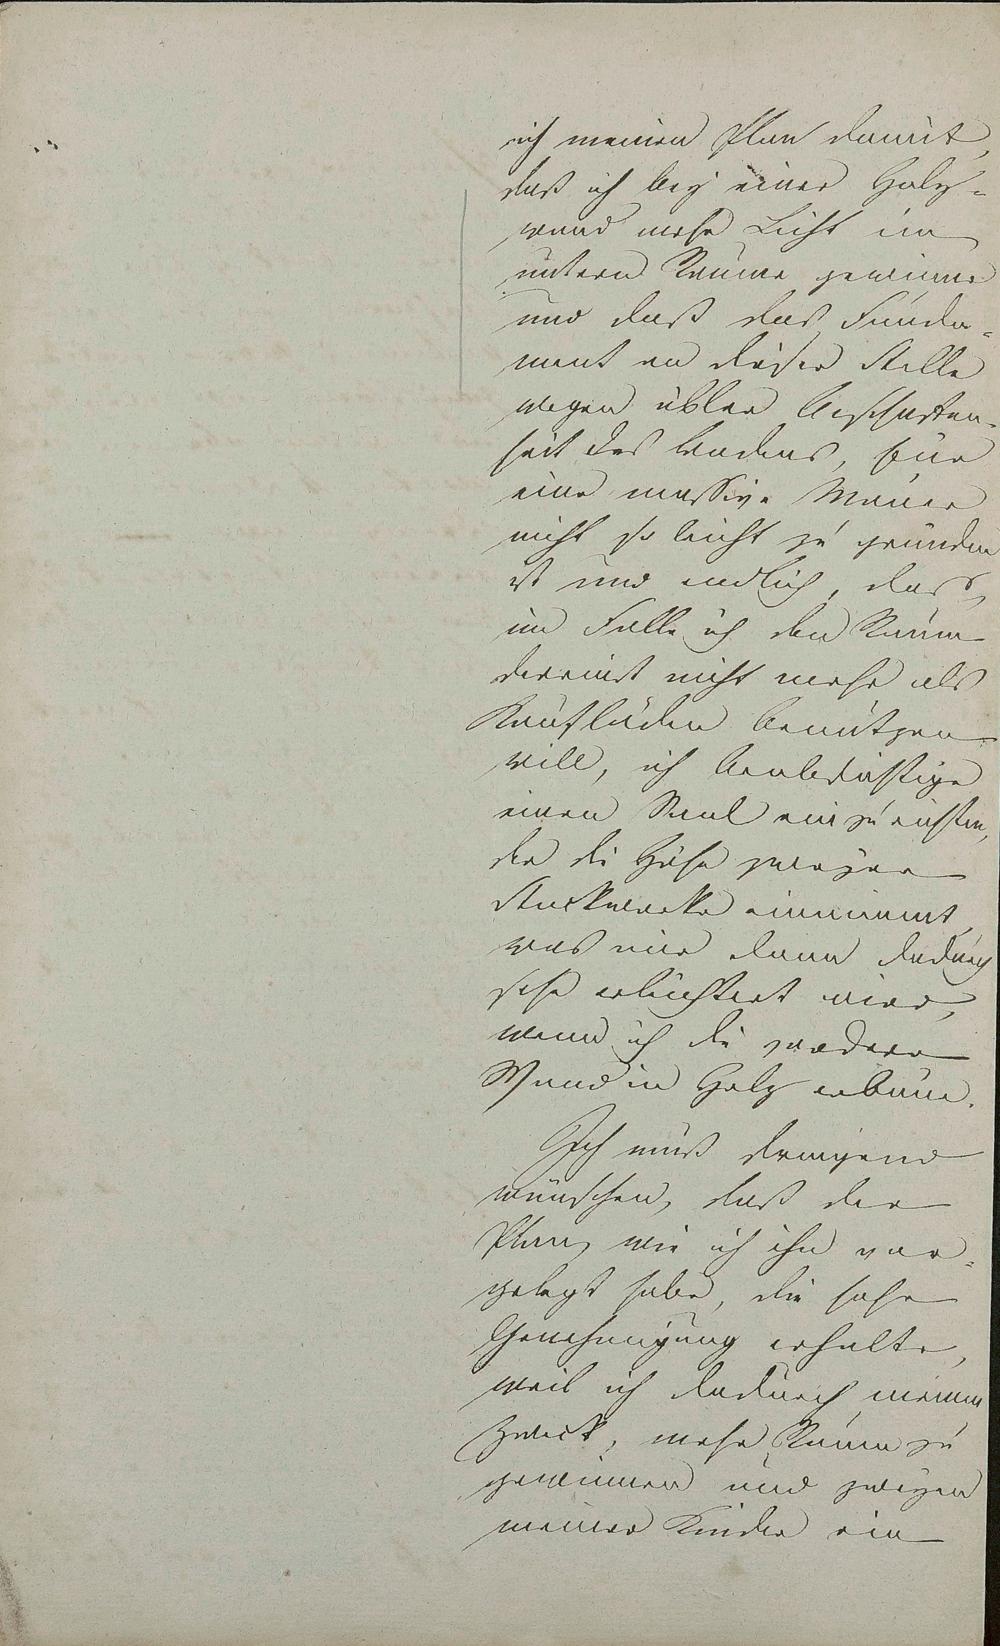 ich meinen Plan damit,
daß ich bey einer Holz-
wand mehr Licht im
untern Raume gewinne
und daß das Funda-
ment an dieser Stelle
wegen übler Beschaffen-
heit des Bodens, für
eine massive Mauer
nicht so leicht zu gründen
ist und endlich, dass,
im Falle ich den Raum
dereinst nicht mehr als
Kaufläden benützen
will, ich beabsichtige
einen Saal einzurichten,
der die Höhe zweyer
Stockwerke einnimmt,
was mir dann dadurch
sehr erleichtert wird,
wenn ich die vordere
Wand in Holz erbaue.
Ich muß dringend
wünschen, daß der
Plan, wie ich ihn vor-
gelegt habe, die hohe
Genehmigung erhalte,
weil ich dadurch meinen
Zweck, mehr Raum zu
gewinnen und zweyen
meiner Kinder ein